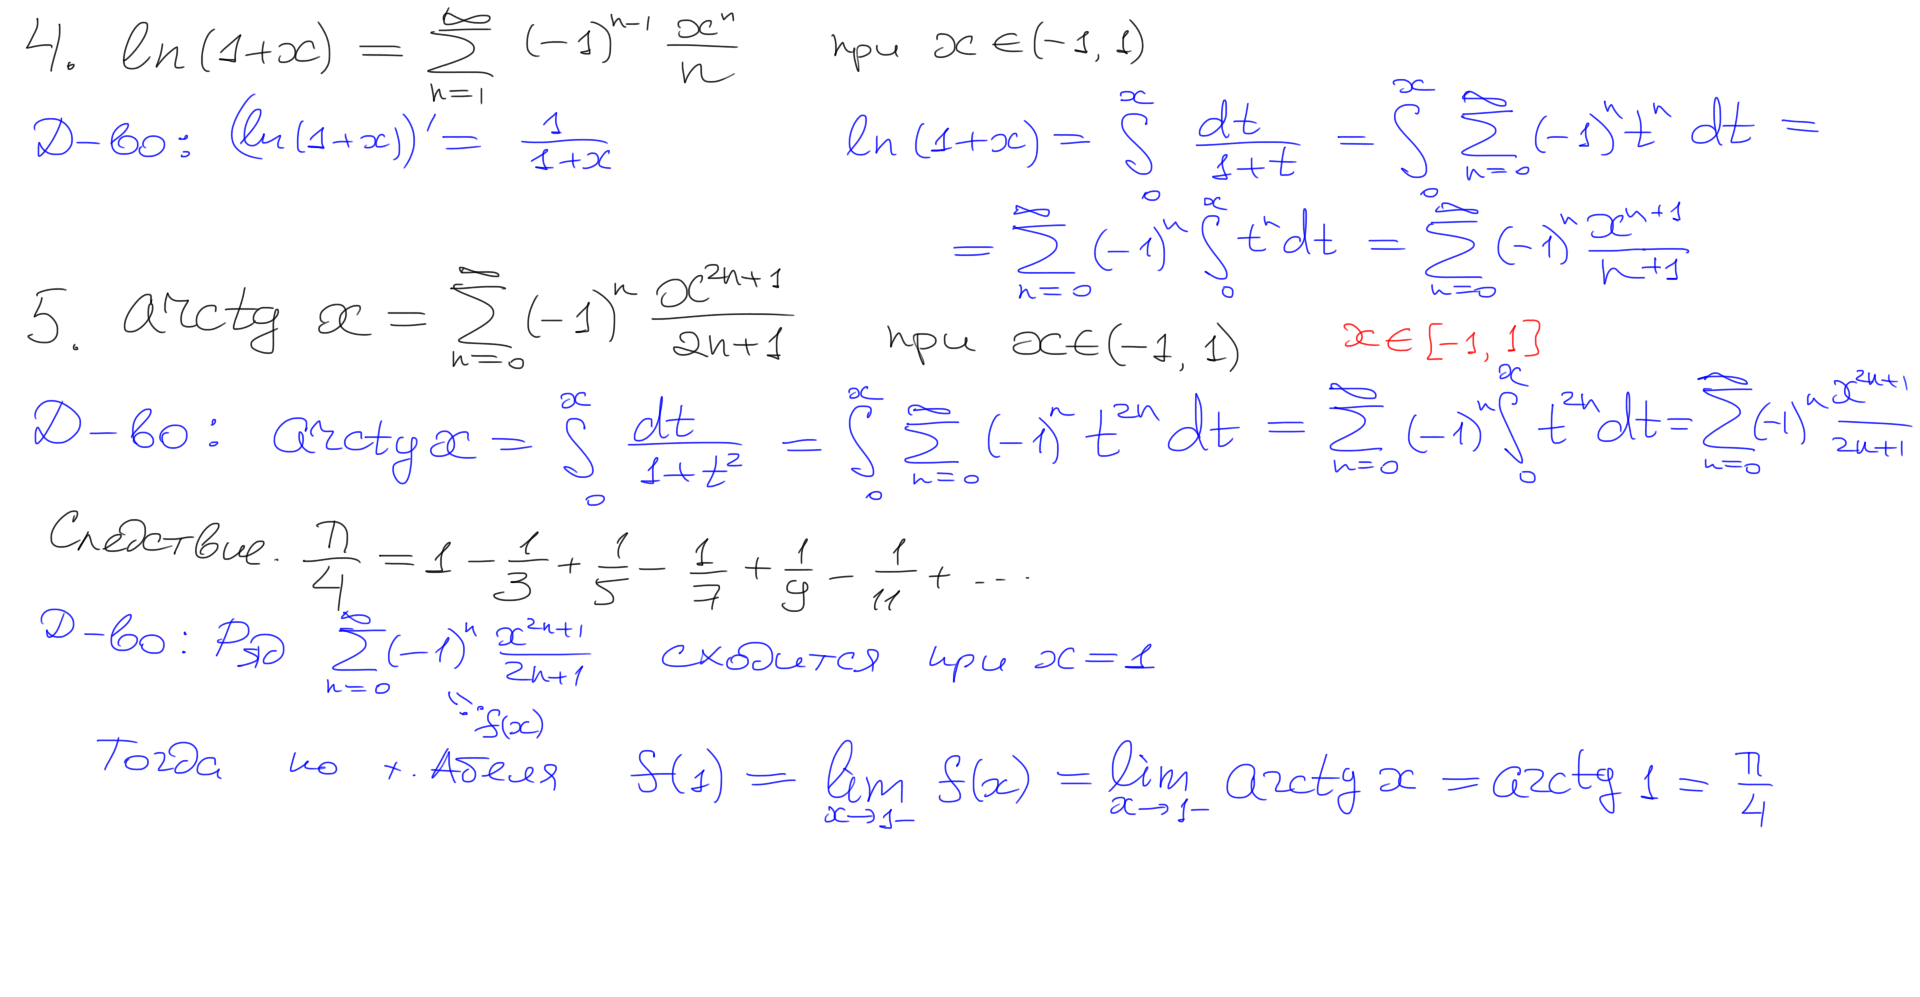 4. ln(1+x) = ∑_{n=1}^{∞} (-1)^{n-1} x^n/n при x ∈ (-1, 1)
Д-во: (ln(1+x))' = 1/(1+x) ln(1+x) = ∫_0^x dt/(1+t) = ∫_0^x ∑_{n=0}^{∞} (-1)^n t^n dt =
= ∑_{n=0}^{∞} (-1)^n ∫_0^x t^n dt = ∑_{n=0}^{∞} (-1)^n x^{n+1}/(n+1)
5. arctg x = ∑_{n=0}^{∞} (-1)^n x^{2n+1}/(2n+1) при x ∈ (-1, 1) x ∈ [-1, 1]
Д-во: arctg x = ∫_0^x dt/(1+t^2) = ∫_0^x ∑_{n=0}^{∞} (-1)^n t^{2n} dt = ∑_{n=0}^{∞} (-1)^n ∫_0^x t^{2n} dt = ∑_{n=0}^{∞} (-1)^n x^{2n+1}/(2n+1)
Следствие. π/4 = 1 - 1/3 + 1/5 - 1/7 + 1/9 - 1/11 + ...
Д-во: Ряд ∑_{n=0}^{∞} (-1)^n x^{2n+1}/(2n+1) сходится при x = 1
=: f(x)
Тогда по т. Абеля f(1) = lim_{x→1-} f(x) = lim_{x→1-} arctg x = arctg 1 = π/4